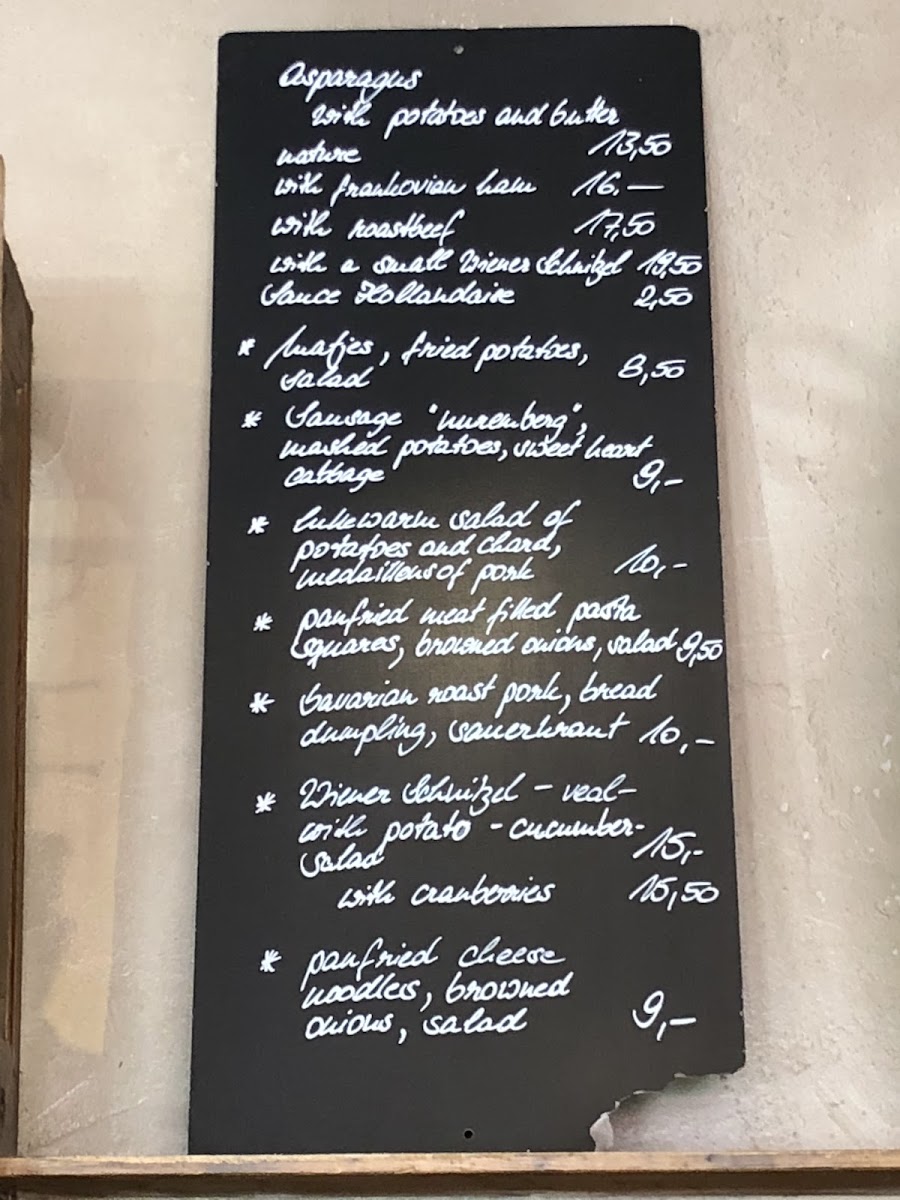 Asparagus
with potatoes and butter
nature 13,50
with frankovian ham 16.—
with roastbeef 17,50
with a small Wiener Schnitzel 19,50
Sauce Hollandaise 2,50
* Matjes, fried potatoes,
salad 8,50
* Sausage "nuremberg",
mashed potatoes, sweet heart
cabbage 9,-
* lukewarm salad of
potatoes and chard,
medaillons of pork 10,-
* panfried meat filled pasta
squares, browned onions, salad 9,50
* bavarian roast pork, bread
dumpling, sauerkraut 10,-
* Wiener Schnitzel - veal-
with potato - cucumber-
salad 15,-
with cranberries 15,50
* panfried cheese
noodles, browned
onions, salad 9,-